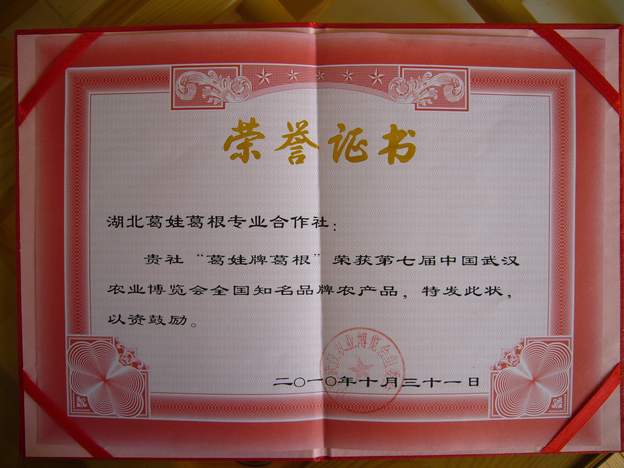 荣誉证书
湖北葛娃葛根专业合作社:
贵社“葛娃牌葛根”荣获第七届中国武汉
农业博览会全国知名品牌农产品，特发此状，
以资鼓励。
二〇一〇年十月三十一日